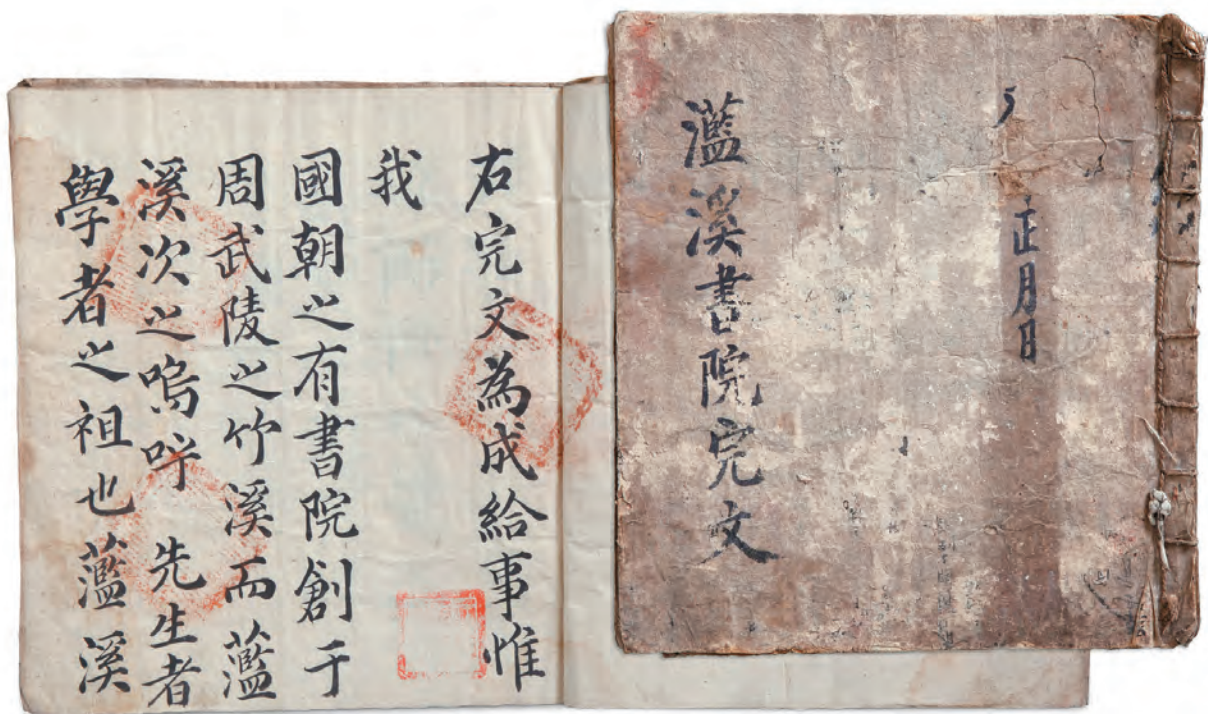 正月日
灆溪書院完文
右完文為成給事惟
我
國朝之有書院創于
周武陵之竹溪而灆
溪次之嗚呼 先生者
學者之祖也灆溪